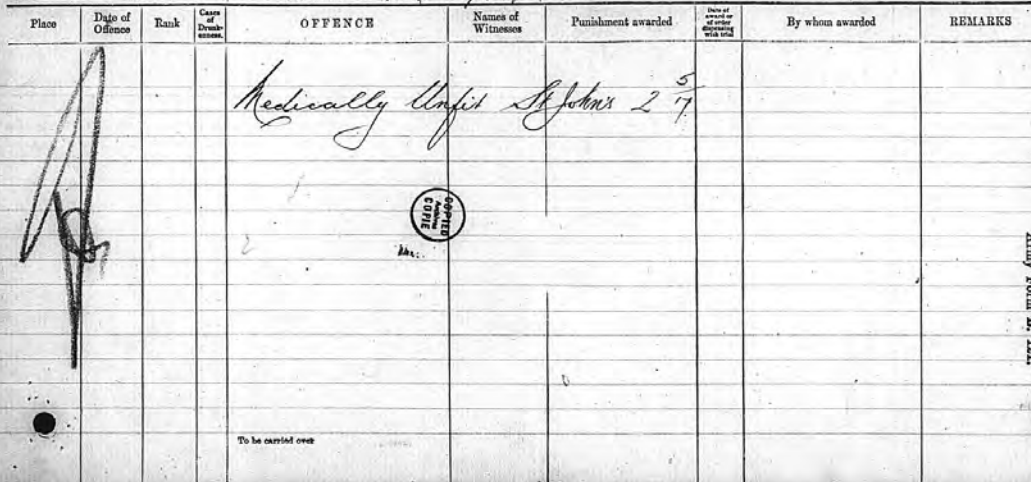 Place
Date of Offence
Rank
Cases of Drunkenness.
OFFENCE
Names of Witnesses
Punishment awarded
Date of award or of order dispensing with trial
By whom awarded
REMARKS
Medically Unfit St John's 2 5/17
COPIED
COPIE
To be carried over
Army Form B.